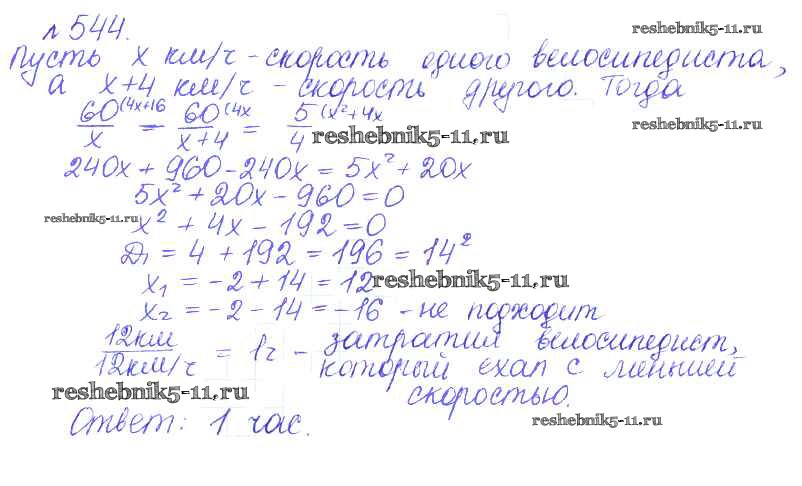 № 544.
reshebnik5-11.ru
Пусть x км/ч - скорость одного велосипедиста,
а x+4 км/ч - скорость другого. Тогда
60(4x+16 / x - 60(4x / x+4 = 5(x²+4x / 4
reshebnik5-11.ru
reshebnik5-11.ru
240x + 960 - 240x = 5x² + 20x
5x² + 20x - 960 = 0
reshebnik5-11.ru
x² + 4x - 192 = 0
D₁ = 4 + 192 = 196 = 14²
x₁ = -2 + 14 = 12
reshebnik5-11.ru
x₂ = -2 - 14 = -16 - не подходит
12км / 12км/ч = 1ч - затратил велосипедист,
который ехал с меньшей
reshebnik5-11.ru
скоростью.
Ответ: 1 час.
reshebnik5-11.ru